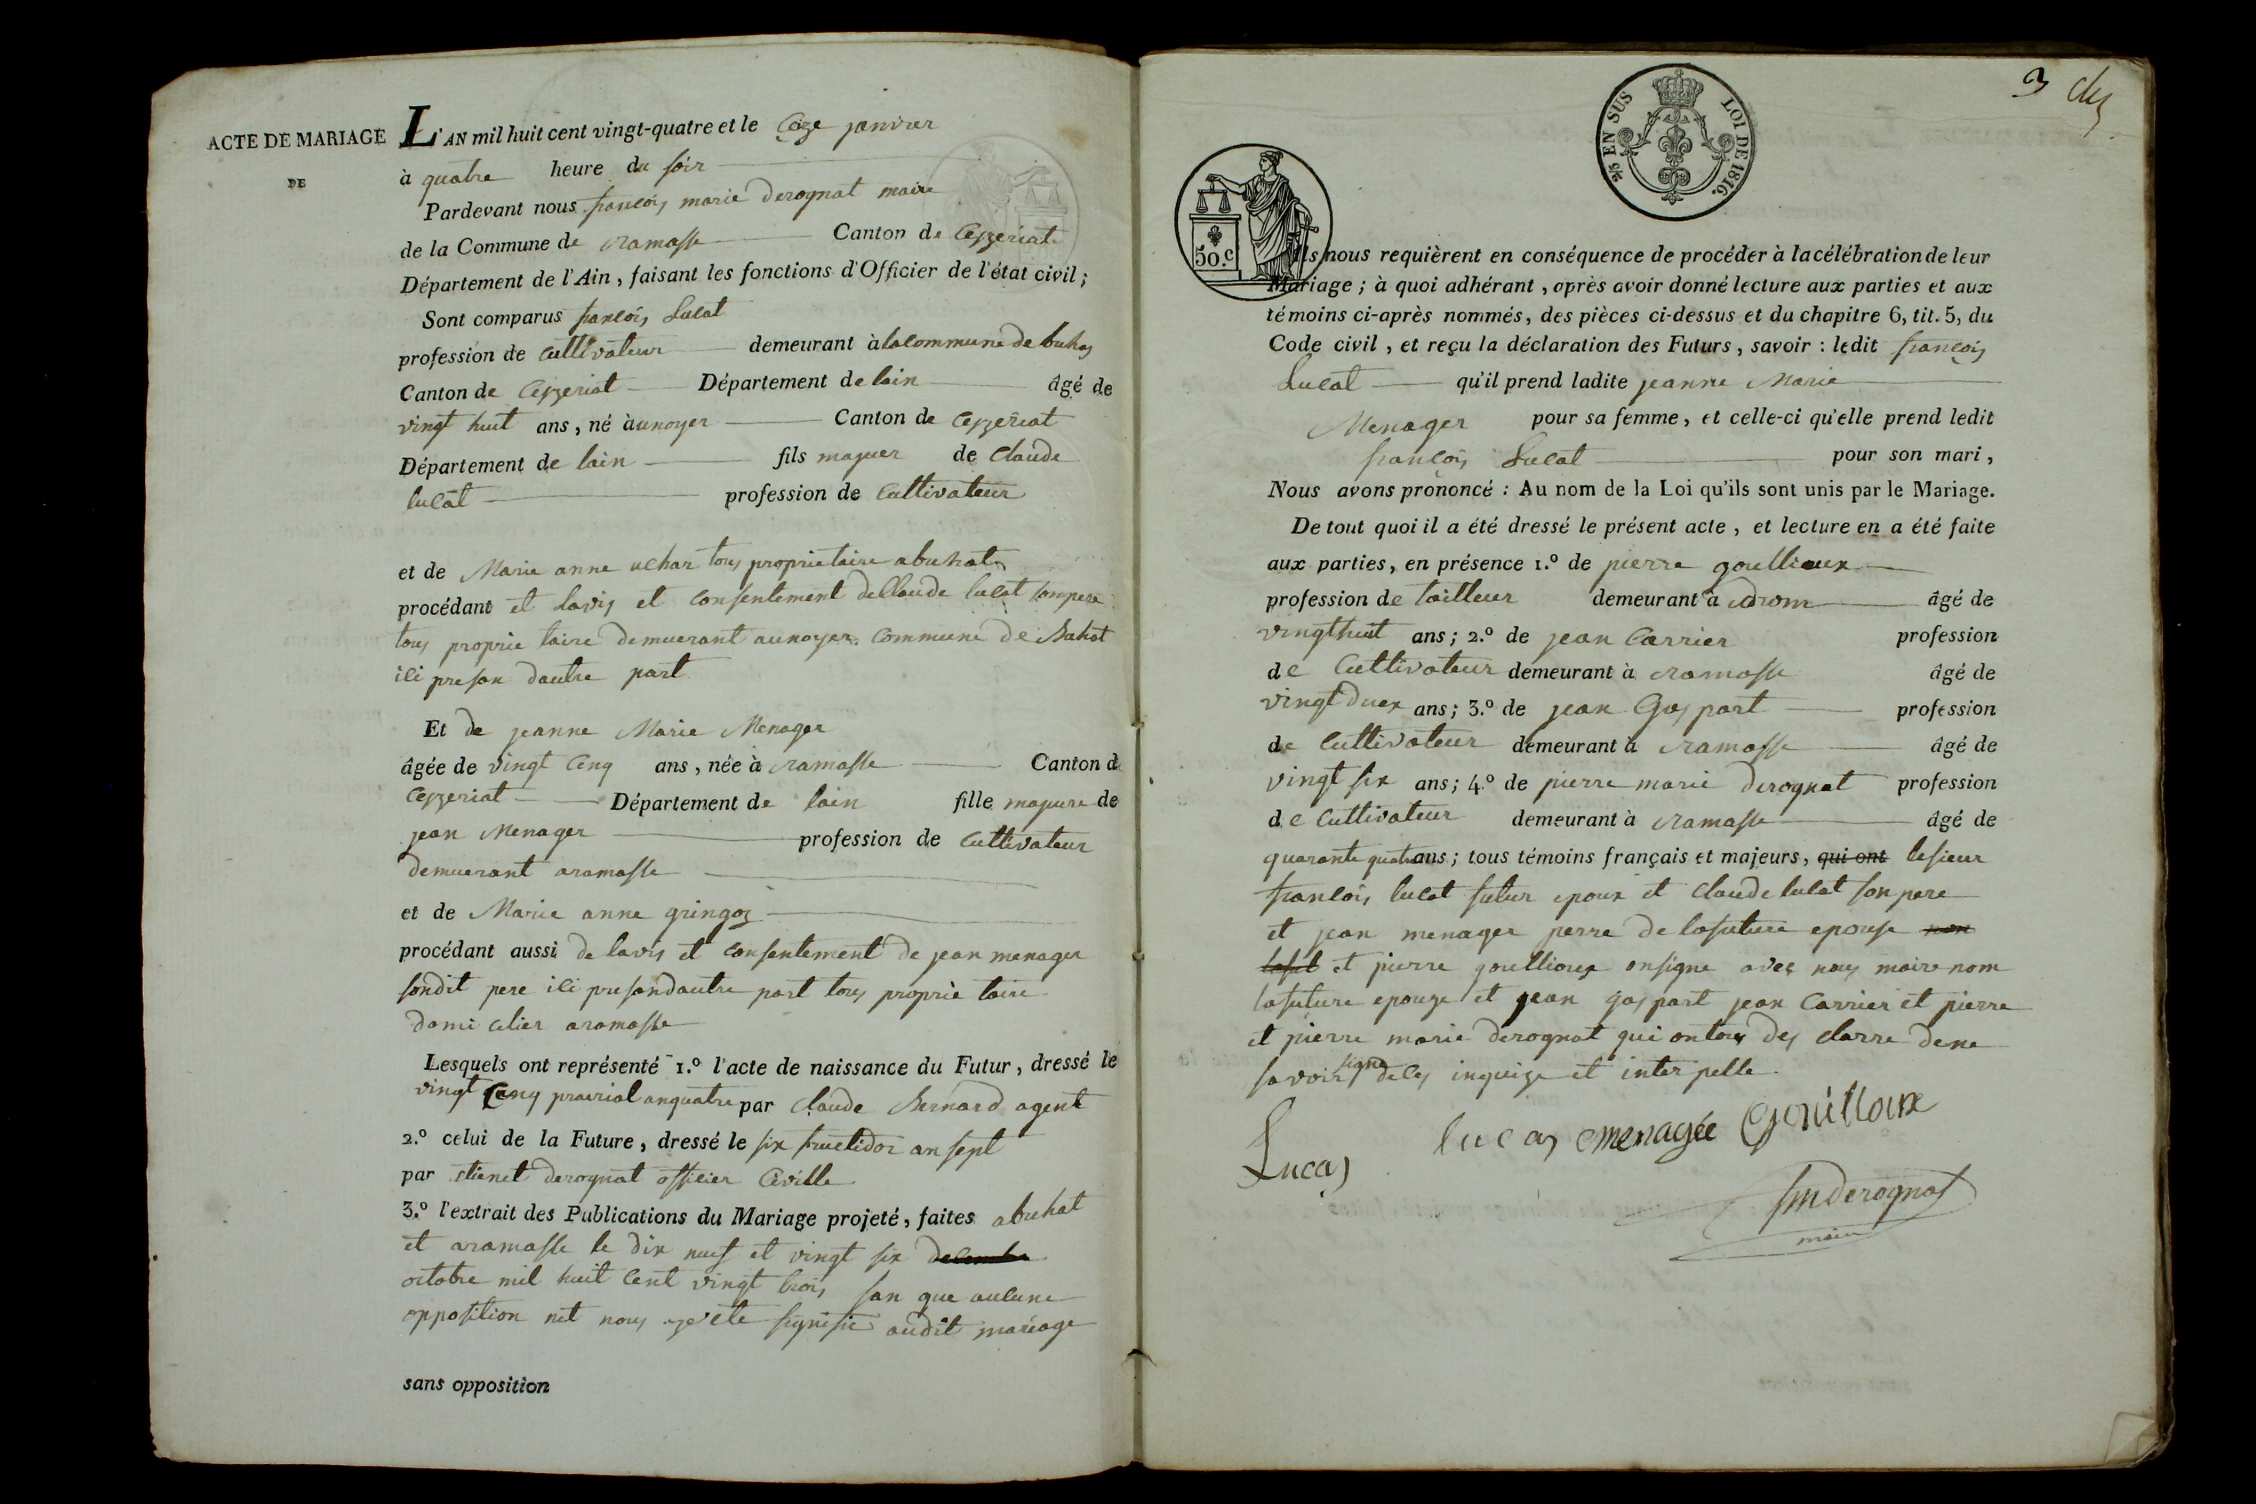 ACTE DE MARIAGE
DE
L'AN mil huit cent vingt-quatre et le Caze janvier
à quatre heure du soir
Pardevant nous françois marie derognat maire
de la Commune de ramasse Canton de Ceyzeriat
Département de l'Ain, faisant les fonctions d'Officier de l'état civil;
Sont comparus françois Lucat
profession de cultivateur demeurant à la commune de buhas
Canton de Ceyzeriat Département de lain âgé de
vingt huit ans, né à unoyer Canton de Ceyzeriat
Département de lain fils majuer de Claude
lucat profession de Cultivateur
et de Marie anne uchar tous proprietaire a buhat
procédant et lavis et consentement de Claude lucat son pere
tous proprie taire demuerant aunoyer commune de Buhat
ici preson dautre part
Et de jeanne Marie Menager
âgée de vingt Cinq ans, née à ramasse Canton de
Ceyzeriat Département de lain fille majure de
jean Menager profession de Cultivateur
demuerant aramasse
et de Marie anne gringoz
procédant aussi de lavis et consentement de jean menager
sondit pere ici presondautre part tous proprie taire
domi cilier aramasse
Lesquels ont représenté 1.º l'acte de naissance du Futur, dressé le
vingt Cinq prairial anquatre par claude Bernard agent
2.º celui de la Future, dressé le six fructidor an sept
par etienet derognat officier Civille
3.º l'extrait des Publications du Mariage projeté, faites abuhat
et aramasse le dix neuf et vingt six decembre
octobre mil huit Cent vingt trois san que aucune
opposition net nous eyete signifie audit mariage
sans opposition
3
2/5 EN SUS LOI DE 1816.
50.c
Ils nous requièrent en conséquence de procéder à la célébration de leur
Mariage; à quoi adhérant, après avoir donné lecture aux parties et aux
témoins ci-après nommés, des pièces ci-dessus et du chapitre 6, tit. 5, du
Code civil, et reçu la déclaration des Futurs, savoir: ledit françois
Lucat qu'il prend ladite jeanne Marie
Menager pour sa femme, et celle-ci qu'elle prend ledit
françois Lucat pour son mari,
Nous avons prononcé: Au nom de la Loi qu'ils sont unis par le Mariage.
De tout quoi il a été dressé le présent acte, et lecture en a été faite
aux parties, en présence 1.º de pierre goullioux
profession de tailleur demeurant à drom âgé de
vingthuit ans; 2.º de jean Carrier profession
de Cultivateur demeurant à ramasse âgé de
vingt duex ans; 3.º de jean Gaspart profession
de Cultivateur demeurant à ramasse âgé de
vingt six ans; 4.º de pierre marie derognat profession
de Cultivateur demeurant à ramasse âgé de
quarante quatre ans; tous témoins français et majeurs, qui ont lesieur
francois lucat futur epoux et Claude lucat son pere
et jean menager perre de lafuture epouse non
lafut et pierre goullioux onsigne avec nous maire nom
lafuture epouze et jean gaspart jean Carrier et pierre
et pierre marie derognat qui ontous des clarre dene
savoir signe deces inquize et inter pelle.
Lucas lucas menagée Gouilloux
fmderognat
maire